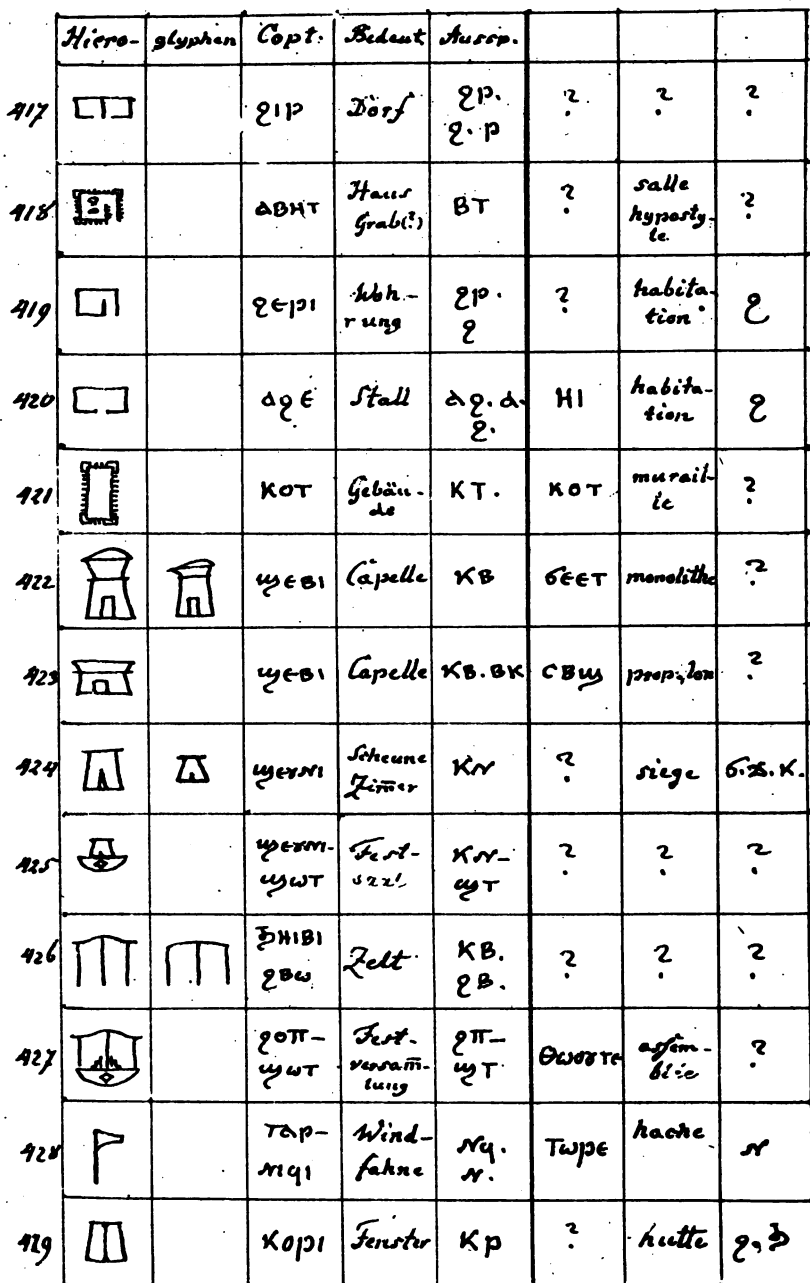 Hiero- glyphen Copt. Bedeut. Aussp.
417 ϩⲓⲣ Dorf ϩⲣ. ϩ.ⲣ ? ? ?
418 ⲁⲃⲏⲧ Haus Grab(?) ⲃⲧ ? salle hyposty-le. ?
419 ϩⲉⲣⲓ Woh-nung ϩⲣ. ϩ ? habita-tion ϩ
420 ⲁϩⲉ Stall ⲁϩ. ⲁ. ϩ. ⲏⲓ habita-tion ϩ
421 ⲕⲟⲧ Gebäu-de ⲕⲧ. ⲕⲟⲧ murail-le ?
422 ϣⲉⲃⲓ Capelle ⲕⲃ ϭⲉⲉⲧ monolithe ?
423 ϣⲉⲃⲓ Capelle ⲕⲃ.ⲃⲕ ⲥⲃϣ propylon ?
424 ϣⲉⲩⲛⲓ Scheune Zim̄er ⲕⲛ ? siege ϭ.ϫ.ⲕ.
425 ϣⲉⲩⲛⲓ-ϣⲱⲧ Fest- ⲕⲛ-ϣⲧ ? ? ?
426 ϧⲏⲓⲃⲓ ϩⲃⲱ Zelt ⲕⲃ. ϩⲃ. ? ? ?
427 ϩⲟⲡ-ϣⲱⲧ Fest-versam̄-lung ϩⲡ-ϣⲧ ⲑⲱⲟⲩⲧⲉ assem-blée ?
428 ⲧⲁⲣ-ⲛⲓϥⲓ Wind-fahne ⲛϥ. ⲛ. ⲧⲱⲣⲉ hache ⲛ
429 ⲕⲟⲣⲓ Fenster ⲕⲣ ? hutte ϩ, ϧ